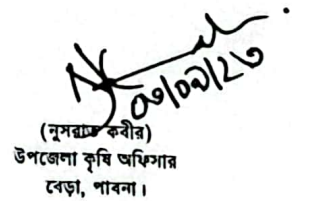 ০৩/০৯/২৩
(নুসরাত কবীর)
উপজেলা কৃষি অফিসার
বেড়া, পাবনা।